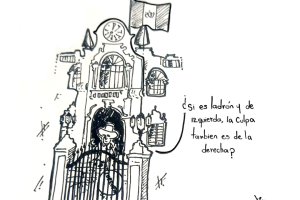 ¿Si es ladrón y de
izquierda, la culpa
tambien es de la
derecha?